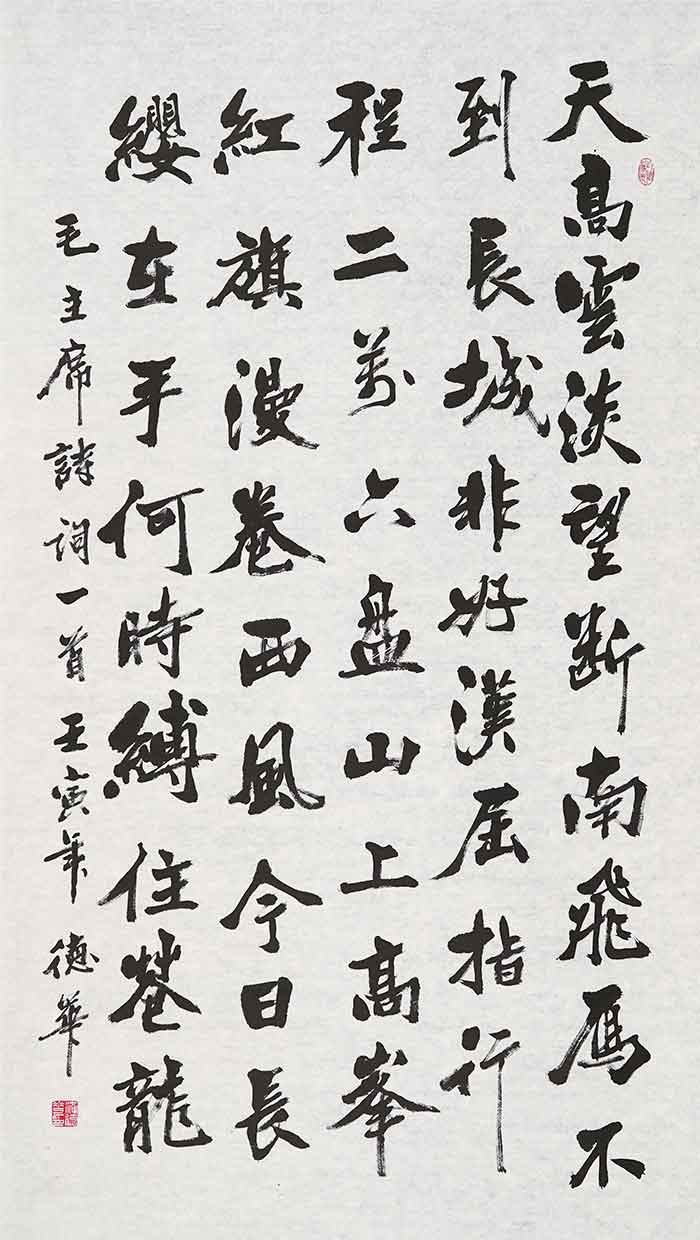 天高雲淡望断南飛雁不
到長城非好漢屈指行
程二萬六盤山上高峯
紅旗漫卷西風今日長
纓在手何時縛住蒼龍
毛主席詩詞一首壬寅年德華